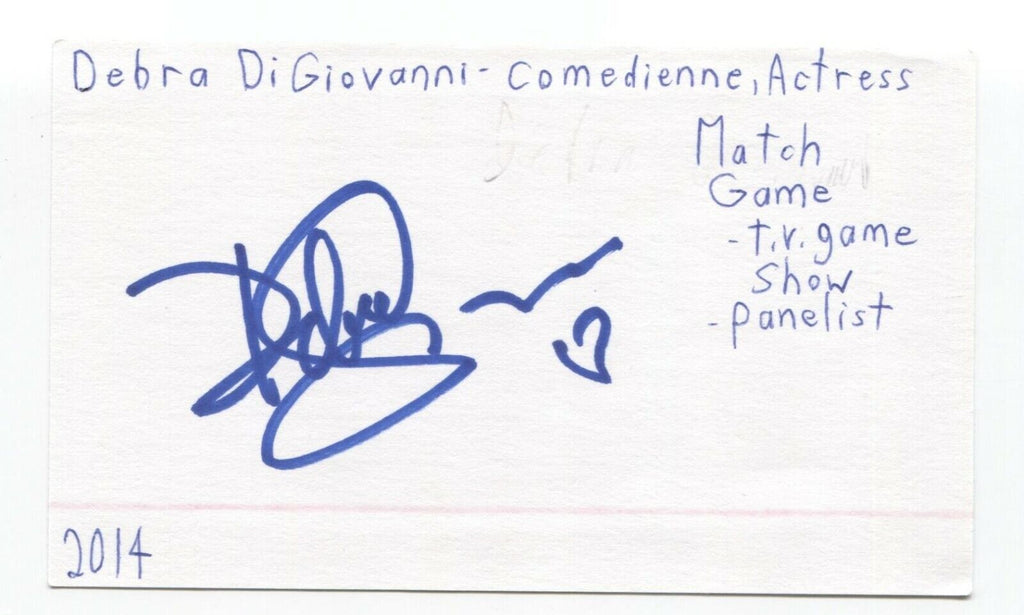 Debra DiGiovanni - Comedienne, Actress
Match
Game
- t.v. game
show
- panelist
2014